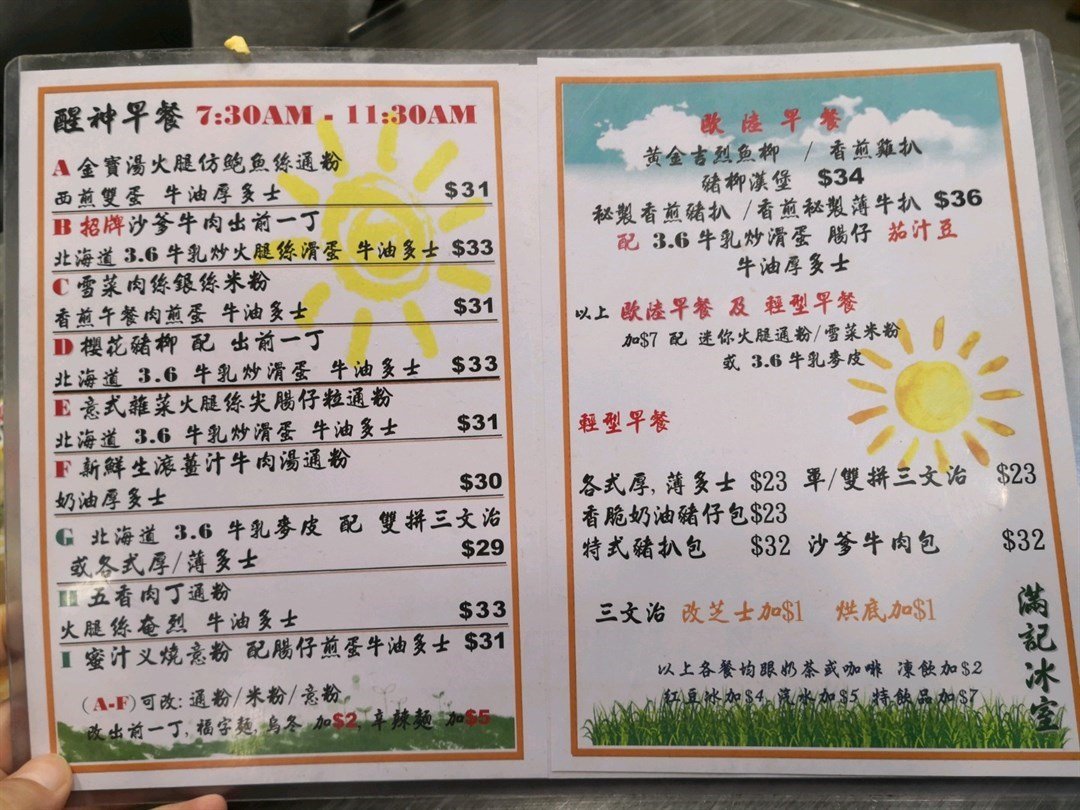 醒神早餐 7:30AM - 11:30AM
A 金寶湯火腿仿鮑魚絲通粉
西煎雙蛋 牛油厚多士 $31
B 招牌沙爹牛肉出前一丁
北海道 3.6 牛乳炒火腿絲滑蛋 牛油多士 $33
C 雪菜肉絲銀絲米粉
香煎午餐肉煎蛋 牛油多士 $31
D 櫻花豬柳 配 出前一丁
北海道 3.6 牛乳炒滑蛋 牛油多士 $33
E 意式雜菜火腿絲尖腸仔粒通粉
北海道 3.6 牛乳炒滑蛋 牛油多士 $31
F 新鮮生滾薑汁牛肉湯通粉
奶油厚多士 $30
G 北海道 3.6 牛乳麥皮 配 雙拼三文治
或各式厚/薄多士 $29
H 五香肉丁通粉
火腿絲奄烈 牛油多士 $33
I 蜜汁义燒意粉 配腸仔煎蛋牛油多士 $31
(A-F)可改:通粉/米粉/意粉
改出前一丁, 福字麵, 烏冬 加$2, 辛辣麵 加$5
歐陸早餐
黃金吉烈魚柳 / 香煎雞扒
豬柳漢堡 $34
秘製香煎豬扒 /香煎秘製薄牛扒 $36
配 3.6 牛乳炒滑蛋 腸仔 茄汁豆
牛油厚多士
以上 歐陸早餐 及 輕型早餐
加$7 配 迷你火腿通粉/雪菜米粉
或 3.6 牛乳麥皮
輕型早餐
各式厚, 薄多士 $23 單/雙拼三文治 $23
香脆奶油豬仔包$23
特式豬扒包 $32 沙爹牛肉包 $32
三文治 改芝士加$1 烘底加$1
以上各餐均跟奶茶或咖啡 凍飲加$2
紅豆冰加$4, 汽水加$5 特飲品加$7
滿記冰室